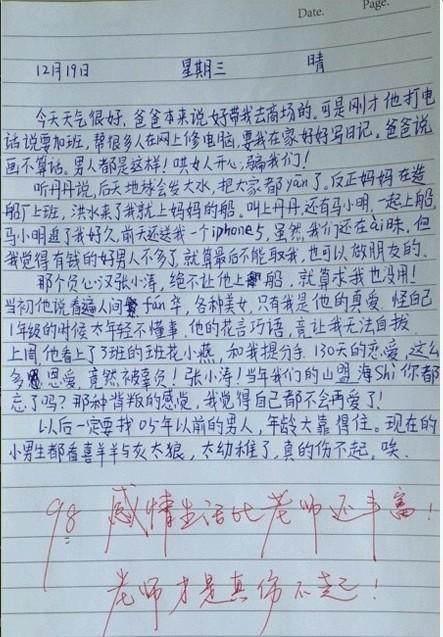 Date.
Page.
12月19日 星期三 晴
今天天气很好,爸爸本来说好带我去商场的。可是刚才他打电
话说要加班,帮很多人在网上修电脑,要我在家好好写日记。爸爸说
画不算话。男人都是这样!哄女人开心,骗我们!
听丹丹说,后天地球会发大水,把大家都yān了。反正妈妈在造
船厂上班,洪水来了我就上妈妈的船。叫上丹丹,还有马小明,一起上船,
马小明追了我好久,前天还送我一个iphone5,虽然我们还在ài昧,但
我觉得有钱的好男人不多了,就算最后不能取我,也可以做朋友的。
那个负心汉张小涛,绝不让他上船,就算求我也没用!
当初他说看遍人间fán华,各种美女,只有我是他的真爱,怪自己
1年级的时候太年轻不懂事,他的花言巧语,竟让我无法自拔
上周他看上了3班的班花小燕,和我提分手,130天的恋爱,这么
多恩爱,竟然被辜负!张小涛!当年我们的山盟海Shi你都
忘了吗?那种背叛的感觉,我觉得自己都不会再爱了!
以后一定要找05年以前的男人,年龄大靠得住。现在的
小男生都看喜羊羊与灰太狼,太幼稚了,真的伤不起,唉.
98 感情生活比老师还丰富!
老师才是真伤不起!